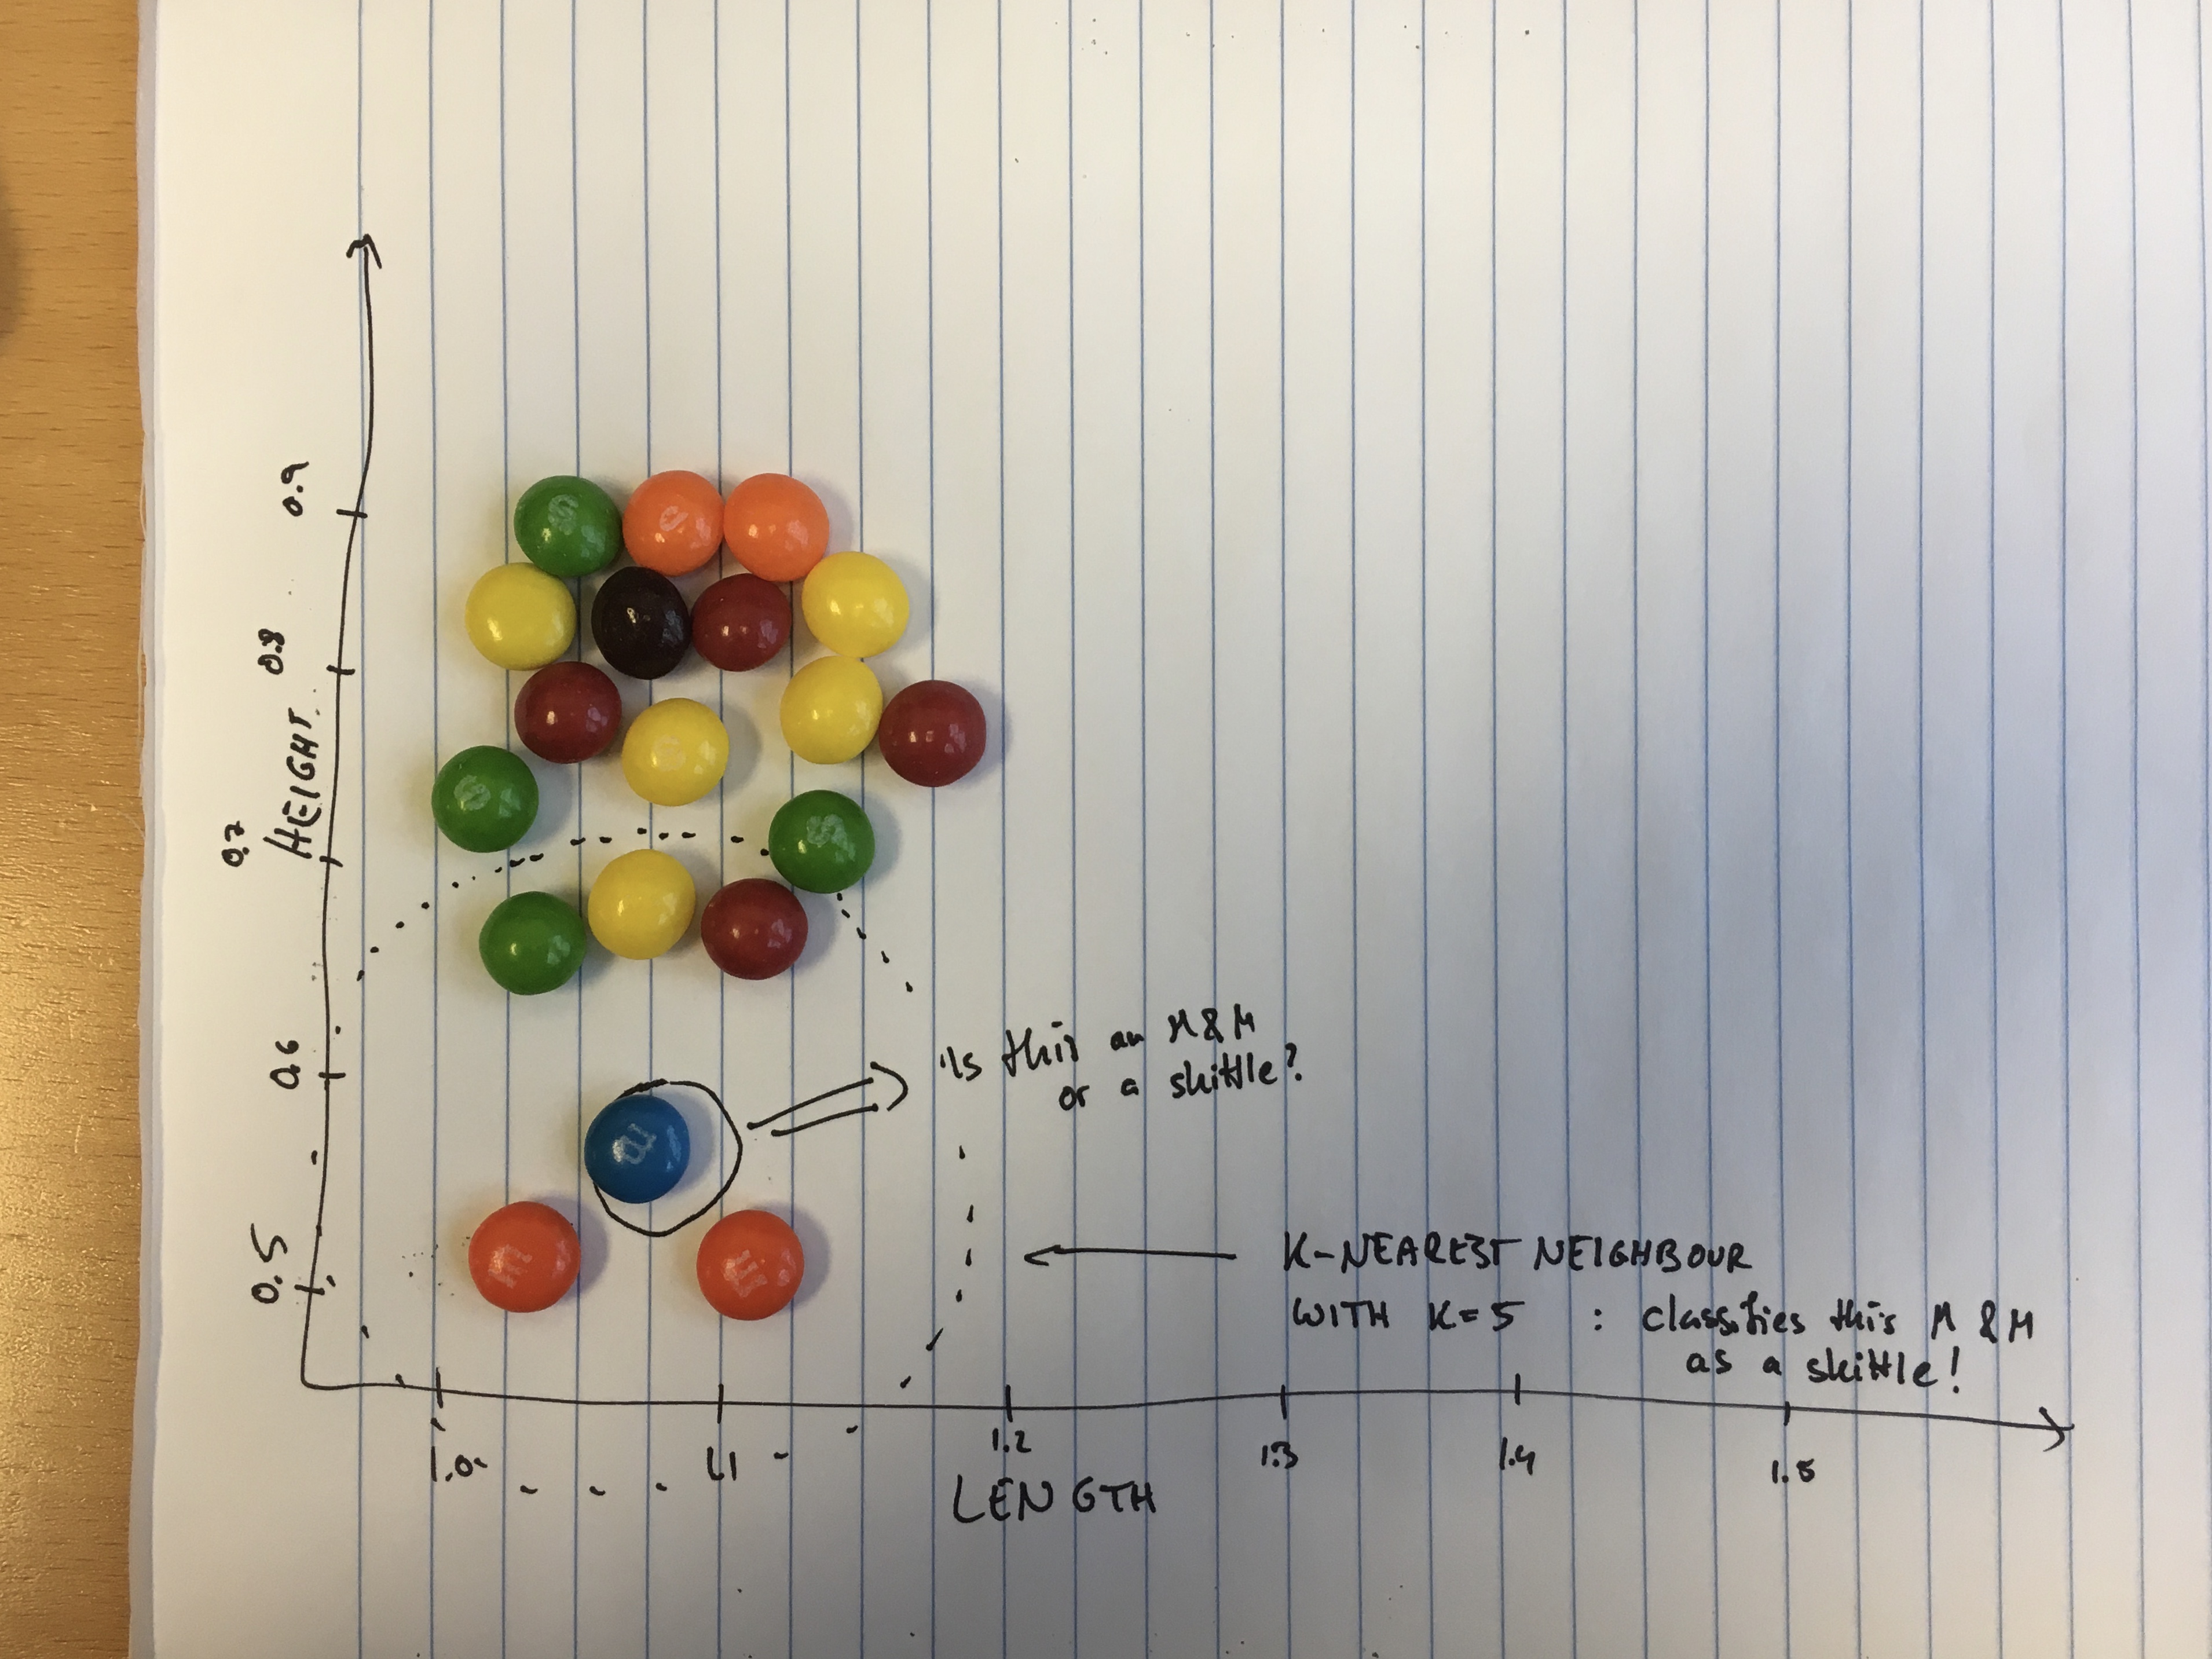 0.9
0.8
HEIGHT
0.7
0.6
0.5
is this an M&M
or a skittle?
K-NEAREST NEIGHBOUR
WITH K=5 : classifies this M&M
as a skittle!
1.0 1.1 1.2 1.3 1.4 1.5
LENGTH
S
S
S
S
S
S
m
m
m